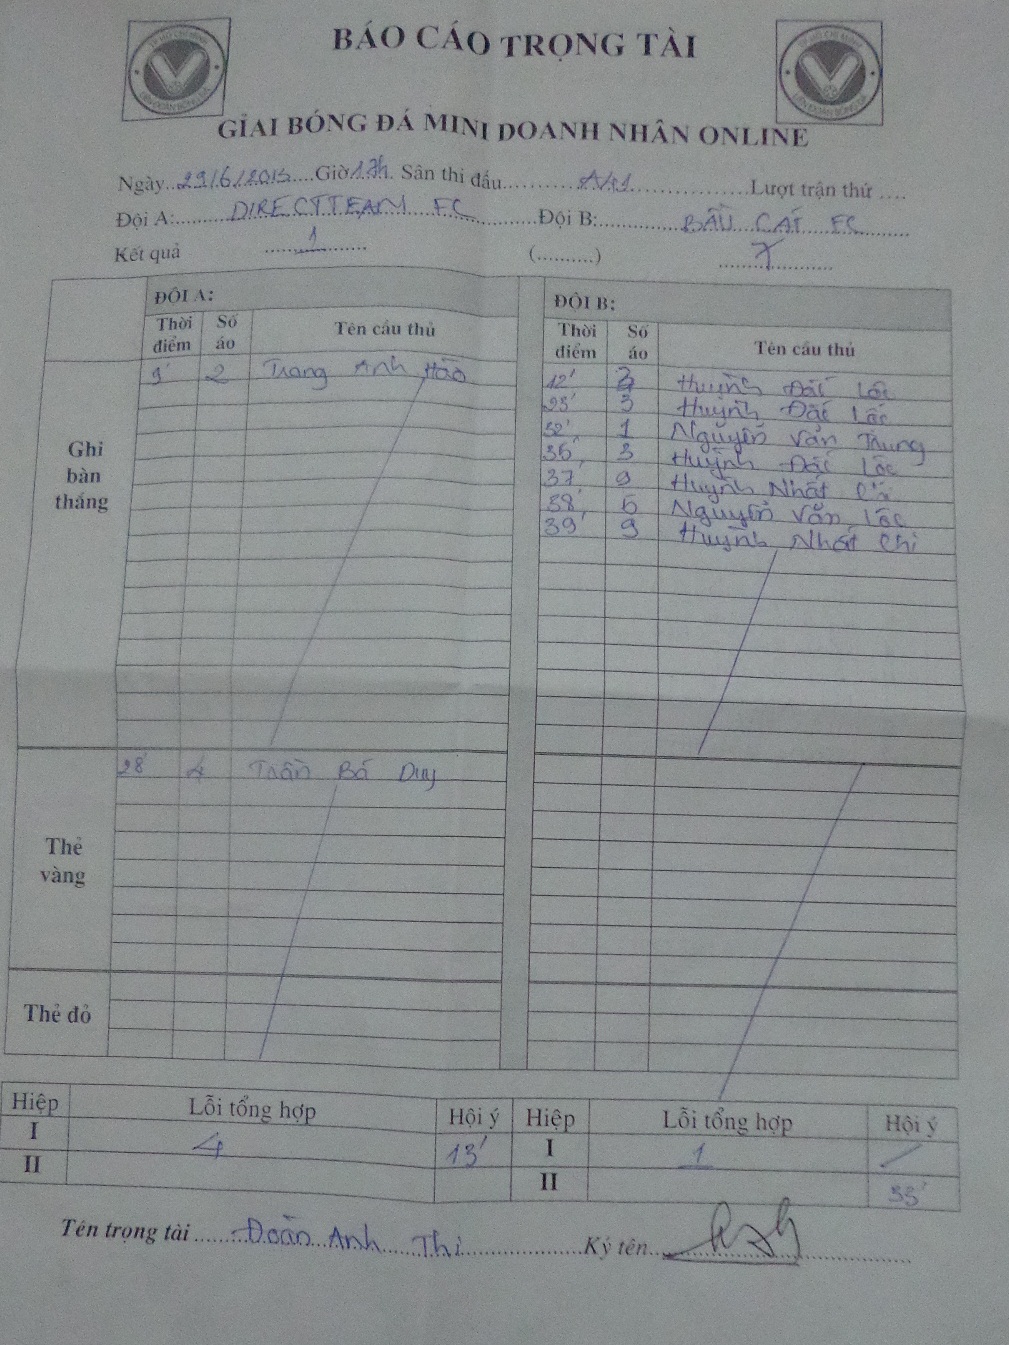 BÁO CÁO TRỌNG TÀI
GIẢI BÓNG ĐÁ MINI DOANH NHÂN ONLINE
Ngày 29/6/2013 Giờ 17h. Sân thi đấu A41 Lượt trận thứ ....
Đội A: DIRECTTEAM FC Đội B: BÀU CÁT FC
Kết quả 1 (..........) 7
ĐỘI A: ĐỘI B:
Thời điểm Số áo Tên cầu thủ Thời điểm Số áo Tên cầu thủ
Ghi bàn thắng
9' 2 Trang Anh Hào 12' Huỳnh Đắc Lộc
23' 3 Huỳnh Đắc Lộc
32' 1 Nguyễn Văn Trung
35' 3 Huỳnh Đắc Lộc
37' 9 Huỳnh Nhất Chi
38' 6 Nguyễn Văn Lộc
39' 9 Huỳnh Nhất Chi
Thẻ vàng
28' 4 Trần Bá Duy
Thẻ đỏ
Hiệp Lỗi tổng hợp Hội ý Hiệp Lỗi tổng hợp Hội ý
I 4 13' I 1
II II 33'
Tên trọng tài Đoàn Anh Thi Ký tên